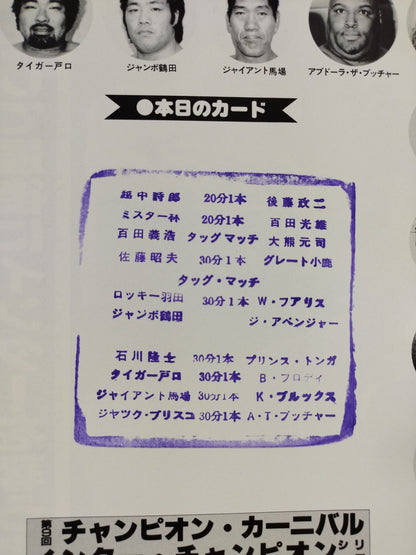 タイガー戸口
ジャンボ鶴田
ジャイアント馬場
アブドーラ・ザ・ブッチャー
●本日のカード
越中詩郎 20分1本 後藤政二
ミスター林 20分1本 百田光雄
百田義浩 タッグマッチ 大熊元司
佐藤昭夫 30分1本 グレート小鹿
タッグ・マッチ
ロッキー羽田 30分1本 W・フアリス
ジャンボ鶴田 ジ・アベンジャー
石川隆士 30分1本 プリンス・トンガ
タイガー戸口 30分1本 B・ブロディ
ジャイアント馬場 30分1本 K・ブルックス
ジヤツク・ブリスコ 30分1本 A・T・ブッチャー
第9回 チャンピオン・カーニバル
インター・チャンピオン シリ